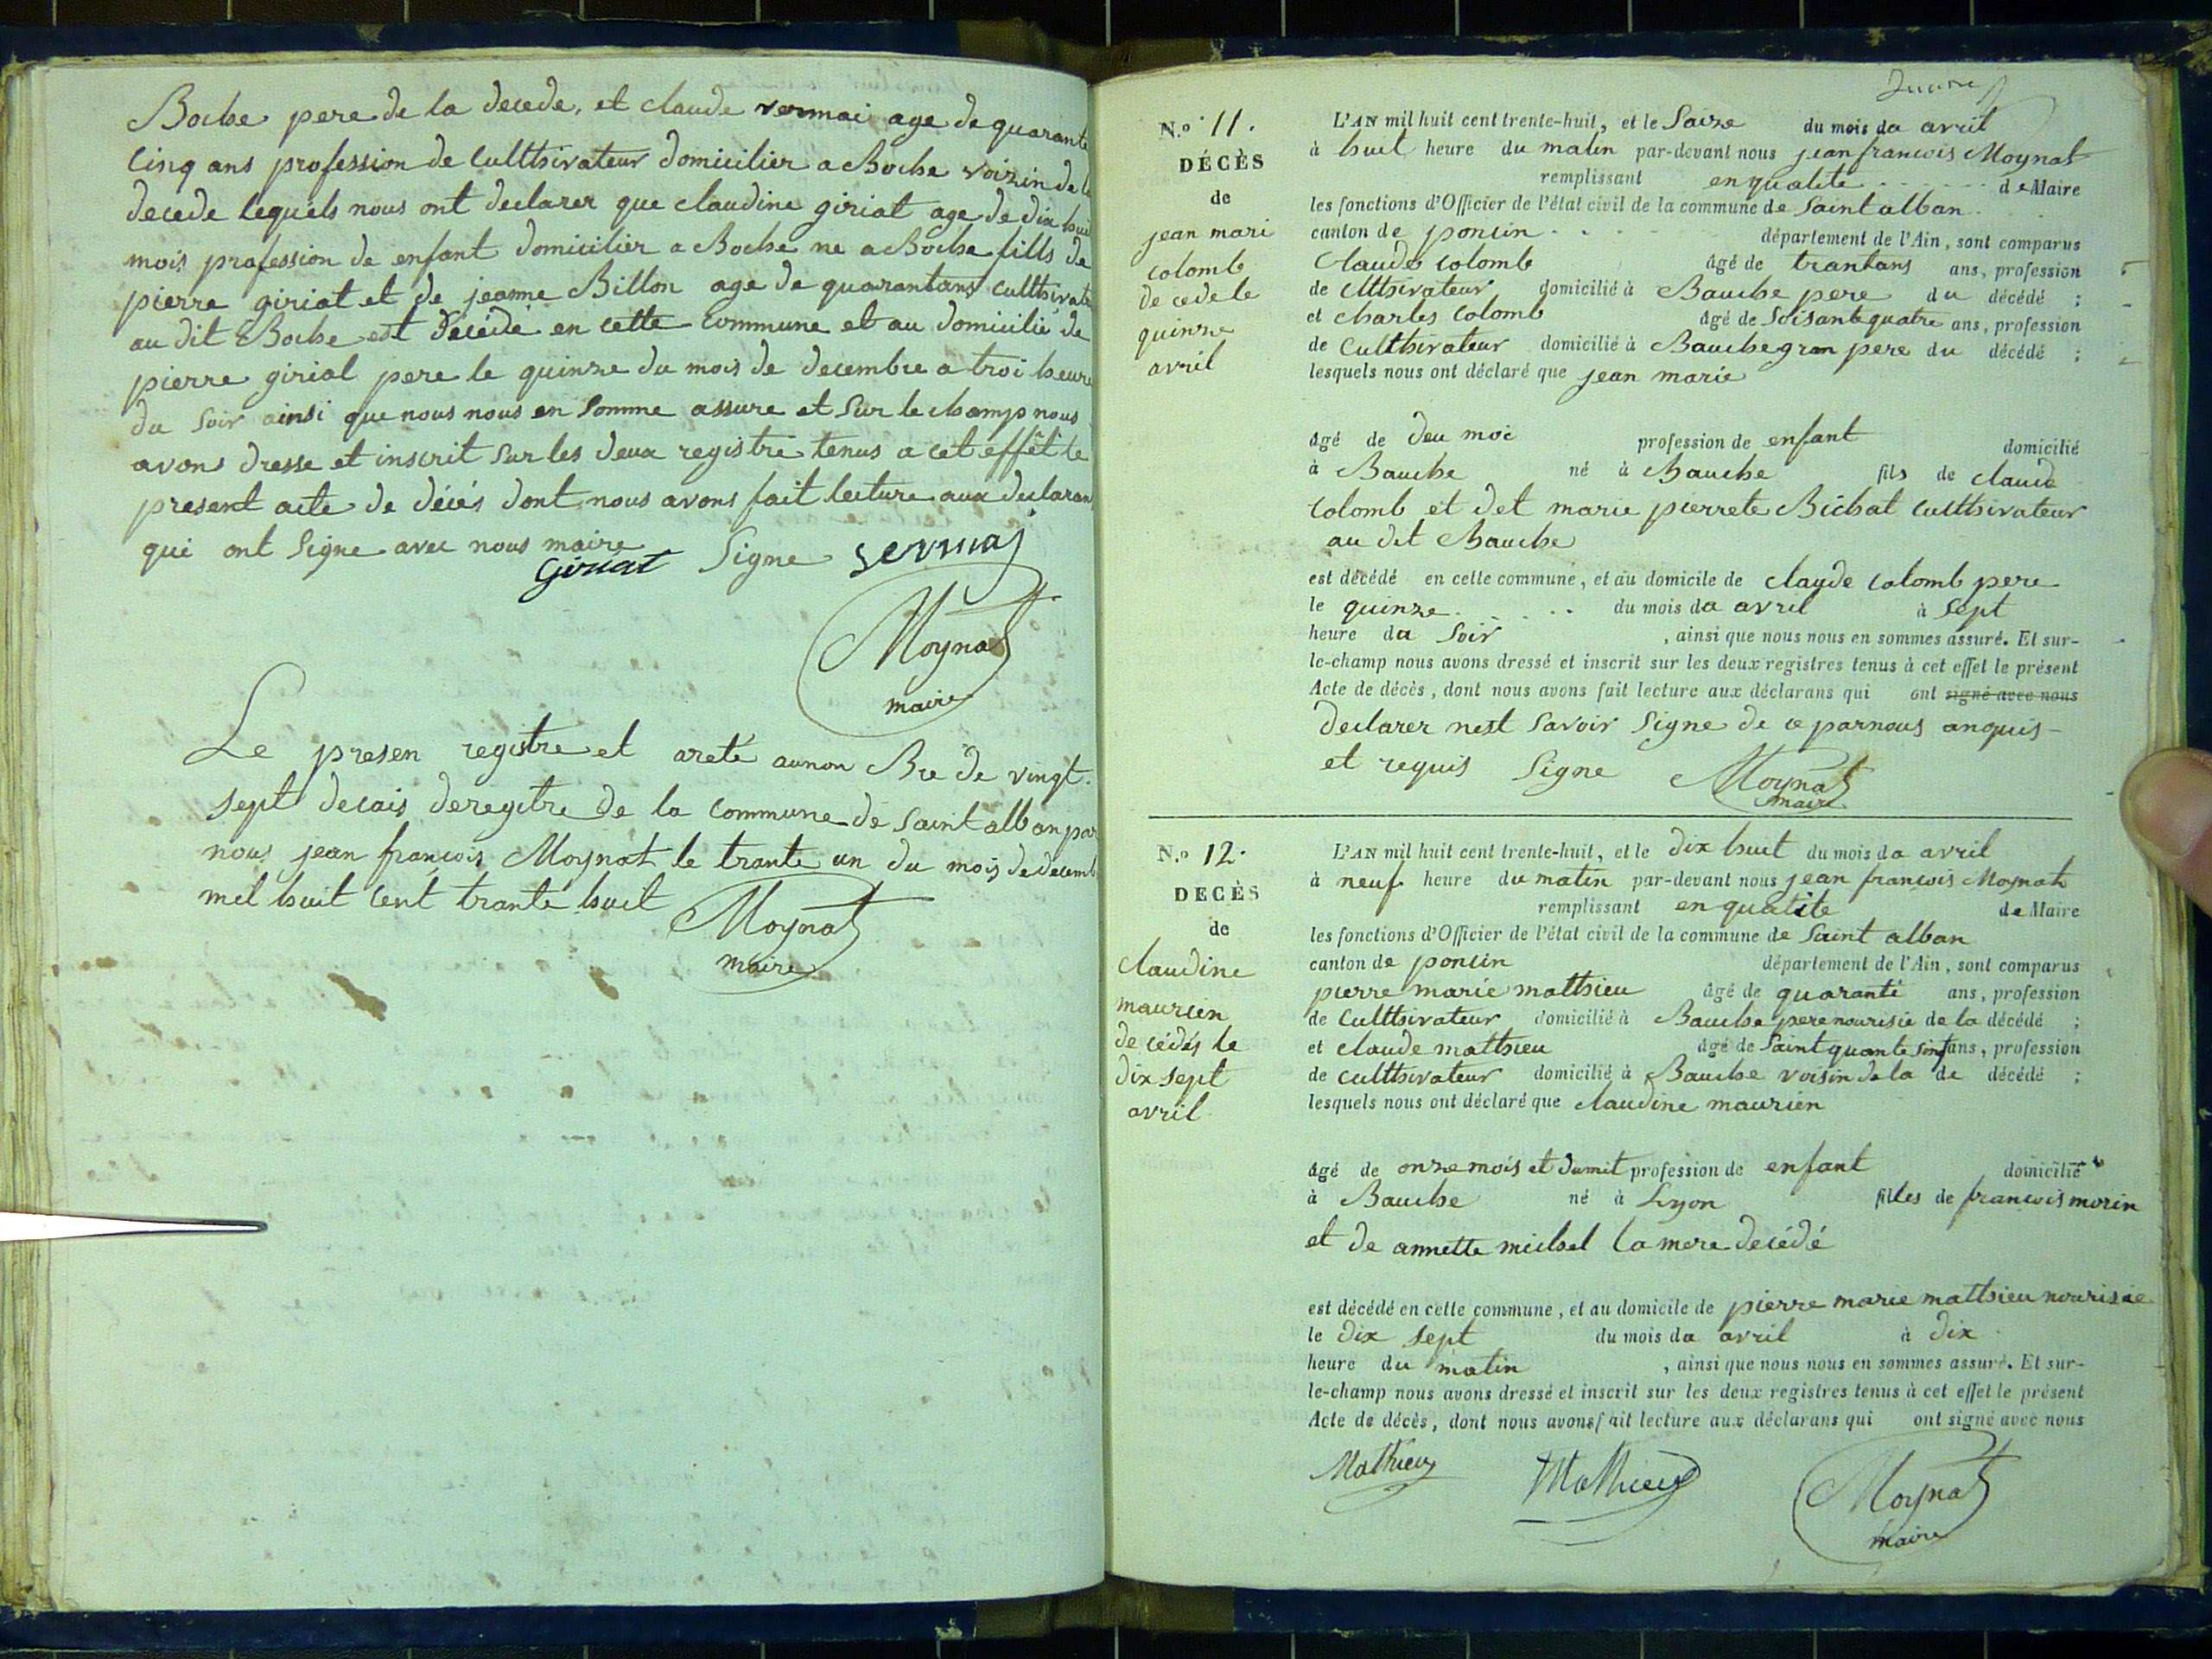 Boche pere de la decede, et claude vermai age de quarante
Cinq ans profession de Culthivateur domicilier a Boche voizin de la
decede lequels nous ont declarer que claudine giriat age de dix hui
mois profession de enfant domicilier a Boche ne a Boche fills de
pierre giriat et de jeanne Billon age de quarantans culthivate
au dit Boche est décédé en cette commune et au domicilie de
pierre giriat pere le quinze du mois de decembre a troi heure
du soir ainsi que nous nous en somme assure et sur le champ nous
avons dresse et inscrit sur les deux registre tenus a cet effêt le
present acte de décés dont nous avons fait lecture aux declaran
qui ont signe avec nous maire signe
Giriat
Moynat
maire
Le presen registre et areté aunon Bre de vingt
sept decais deregitre de la commune de saint alban par
nous jean françois Moynat le trante un du mois de decemb
mil huit cent trante huit
Moynat
maire
N.º 11.
DÉCÈS
de
jean mari
colomb
decedele
quinze
avril
L'AN mil huit cent trente-huit, et le Saize du mois da avril
à huit heure du matin par-devant nous jean francois Moynat
remplissant en qualite de Maire
les fonctions d'Officier de l'état civil de la commune de Saint alban
canton de poncin département de l'Ain, sont comparus
Claude colomb âgé de trantans ans, profession
de clthivateur domicilié à Bauche pere du décédé ;
et charles Colomb âgé de Soisante quatre ans, profession
de Culthivateur domicilié à Bauche gran pere du décédé ;
lesquels nous ont déclaré que jean marie
âgé de deu moi profession de enfant domicilié
à Bauche né à Bauche fils de claude
colomb et det marie pierrete Bichat culthivateur
au dit Bauche
est décédé en cette commune, et au domicile de claude colomb pere
le quinze du mois da avril à sept
heure da Soir , ainsi que nous nous en sommes assuré. Et sur-
le-champ nous avons dressé et inscrit sur les deux registres tenus à cet effet le présent
Acte de décès, dont nous avons fait lecture aux déclarans qui ont signé avec nous
declarer nest savoir signe de ce parnous anquis
et requis Signe Moynat
maire
N.º 12.
DECÈS
de
claudine
maurien
decédés le
dix sept
avril
L'AN mil huit cent trente-huit, et le dix huit du mois da avril
à neuf heure du matin par-devant nous jean françois Moynat
remplissant en qualite de Maire
les fonctions d'Officier de l'état civil de la commune de Saint alban
canton de poncin département de l'Ain, sont comparus
pierre marie matthieu âgé de quarante ans, profession
de Culthivateur domicilié à Bauche pere nourisie de la décédé ;
et claude matthieu âgé de Saint quante sint ans, profession
de culthivateur domicilié à Bauche voisin de la de décédé ;
lesquels nous ont déclaré que claudine maurien
âgé de onze mois et dumit profession de enfant domicilié
à Bauche né à Lyon filles de francois morin
et de annette michel la mere decédé
est décédé en cette commune, et au domicile de pierre marie matthieu nourisie
le dix sept du mois da avril à dix
heure du matin , ainsi que nous nous en sommes assuré. Et sur-
le-champ nous avons dressé et inscrit sur les deux registres tenus à cet effet le présent
Acte de décès, dont nous avons fait lecture aux déclarans qui ont signé avec nous
Mathieu Mathieu Moynat
maire